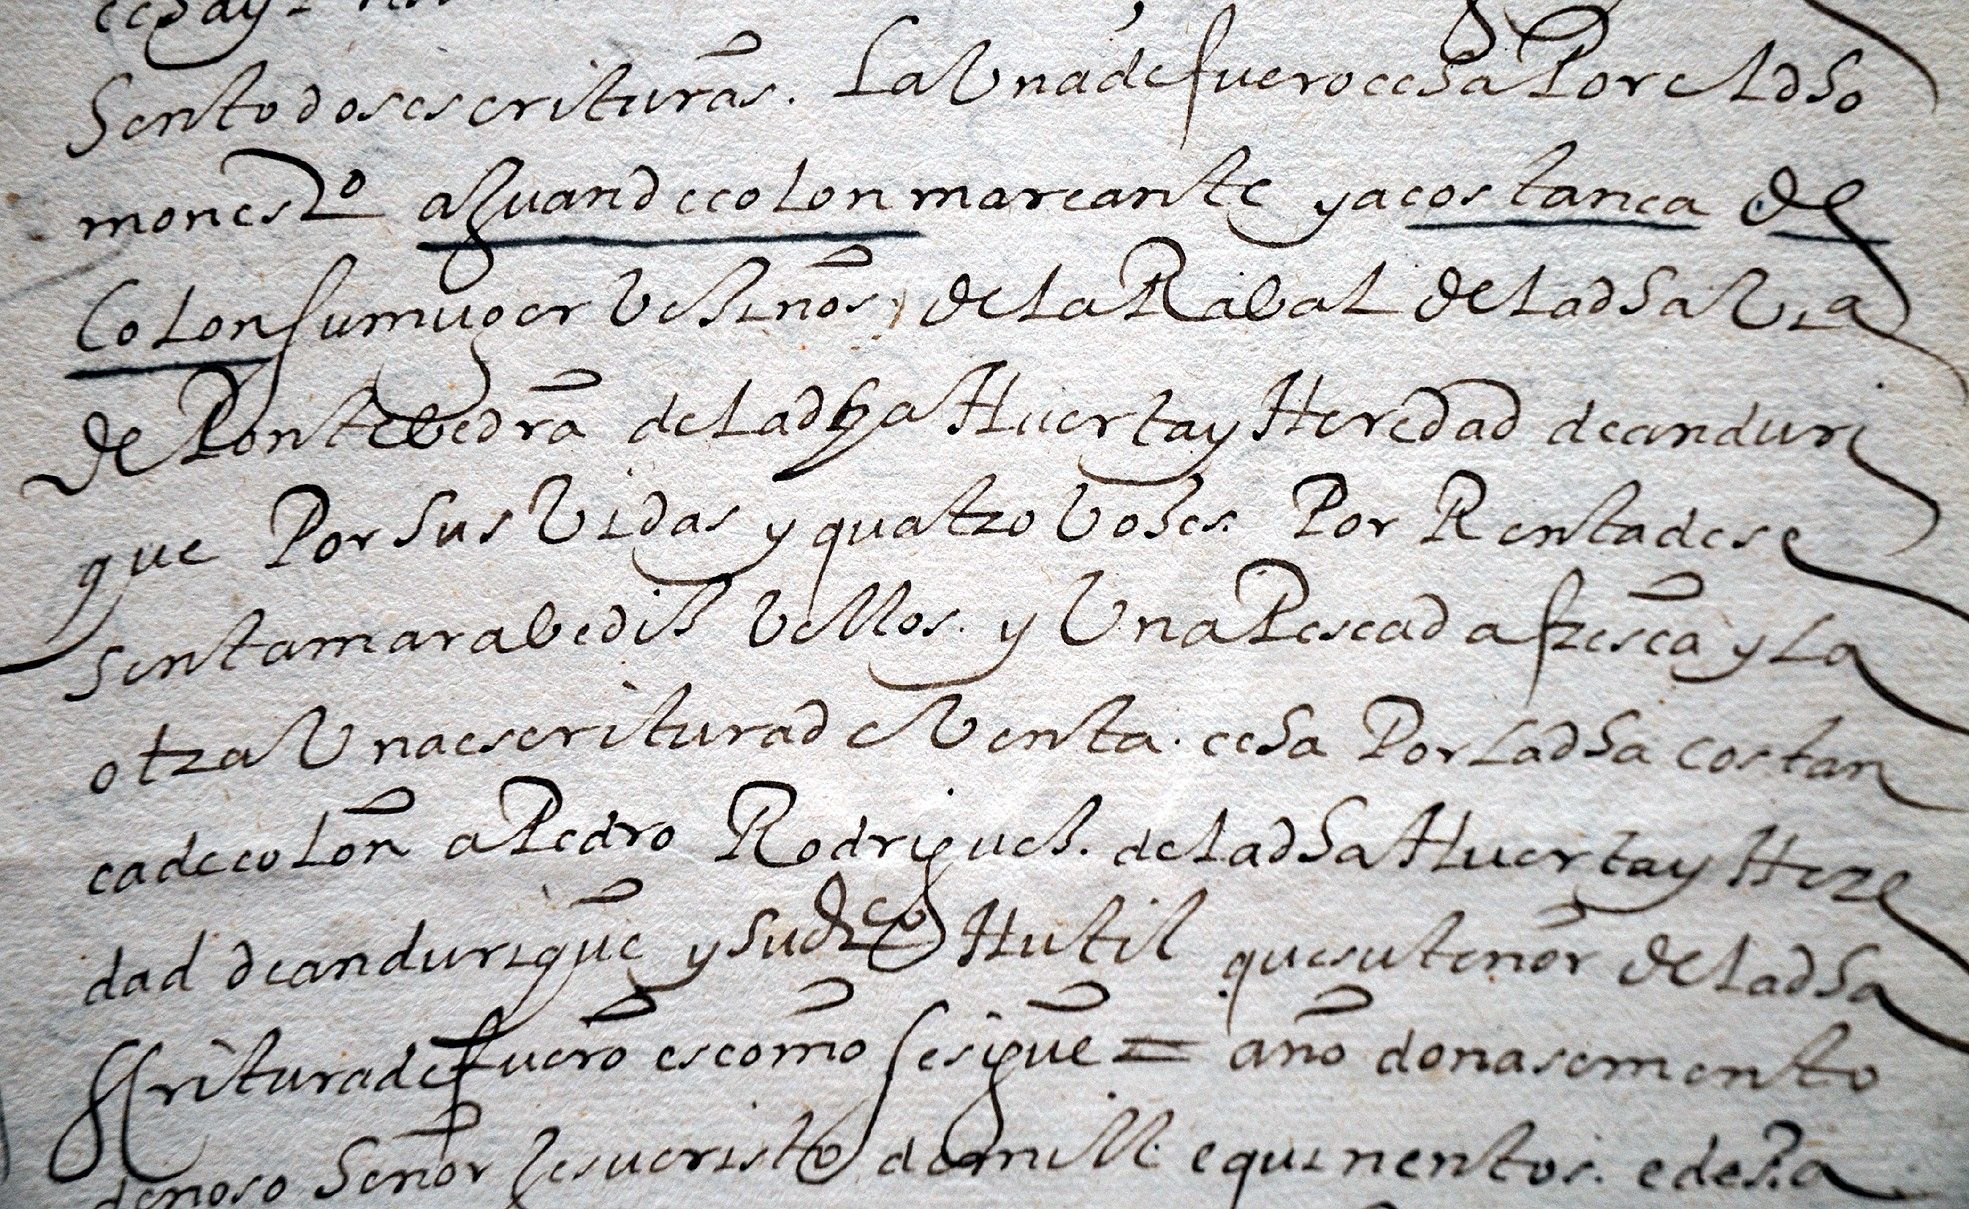 sento dos escrituras. La Una de fuero echa Por el dho
monesto a Juan de colon mareante y a costança de
Colon su muger Vesinos de la Rabal de la dha Va
de Pontebedra de la dha Huerta y Heredad de anduri
que Por sus Vidas y quatro Voses. Por Renta de se
senta marabedis Vellos. y Una Pescada fresca y La
otra Una escritura de Venta. echa Por La dha costan
ça de colon a Pedro Rodrigues. de la dha Huerta y Here
dad de andurique y su dro Hutil que su tenor de la dha
Escritura de fuero es como se sigue = año do nasemento
de noso Señor Jesucristo de mill e quinentos. e des.a